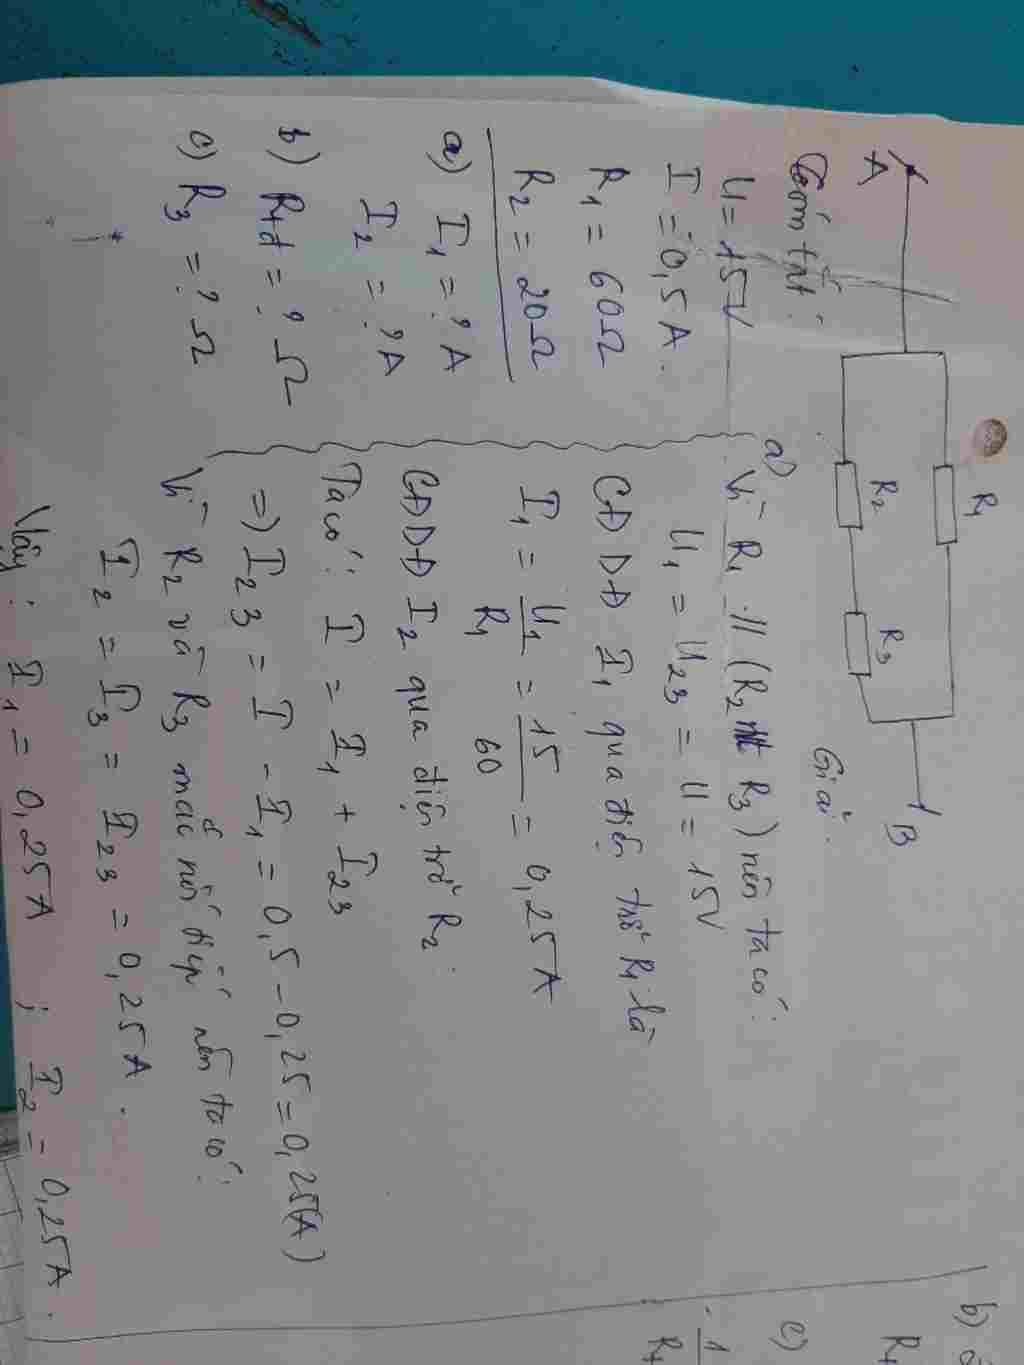 A
R1
R2
R3
B
Tóm tắt:
U = 15V
I = 0,5A.
R1 = 60Ω
R2 = 20Ω
a) I1 = ? A
I2 = ? A
b) Rtđ = ? Ω
c) R3 = ? Ω
Giải:
a) Vì R1 // (R2 nt R3) nên ta có:
U1 = U23 = U = 15V
CĐDĐ I1 qua điện trở R1 là
I1 = U1/R1 = 15/60 = 0,25A
CĐDĐ I2 qua điện trở R2:
Ta có: I = I1 + I23
=> I23 = I - I1 = 0,5 - 0,25 = 0,25(A)
Vì R2 và R3 mắc nối tiếp nên ta có:
I2 = I3 = I23 = 0,25A.
Vậy: I1 = 0,25A ; I2 = 0,25A.
b)
c)
1